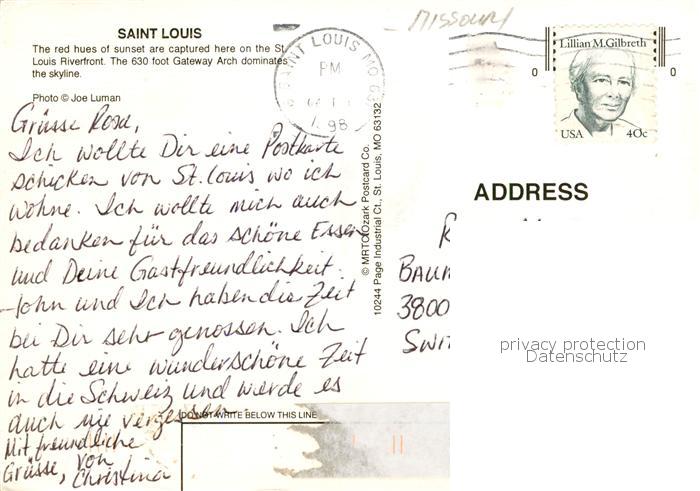 SAINT LOUIS
The red hues of sunset are captured here on the St.
Louis Riverfront. The 630 foot Gateway Arch dominates
the skyline.
Photo © Joe Luman
Grüsse Rosa,
Ich wollte Dir eine Postkarte
schicken von St. Louis wo ich
wohne. Ich wollte mich auch
bedanken für das schöne Essen
und Deine Gastfreundlichkeit.
John und Ich haben die Zeit
bei Dir sehr genossen. Ich
hatte eine wunderschöne Zeit
in die Schweiz und werde es
auch nie vergessen.
Mit freundliche
Grüsse, von
Christina
DO NOT WRITE BELOW THIS LINE
© MRTC Ozark Postcard Co.
10244 Page Industrial Ct., St. Louis, MO 63132
MISSOURI
SAINT LOUIS MO
PM
98
Lillian M. Gilbreth
USA 40c
0
0
ADDRESS
R
BAUM
3800
SWIT
privacy protection
Datenschutz